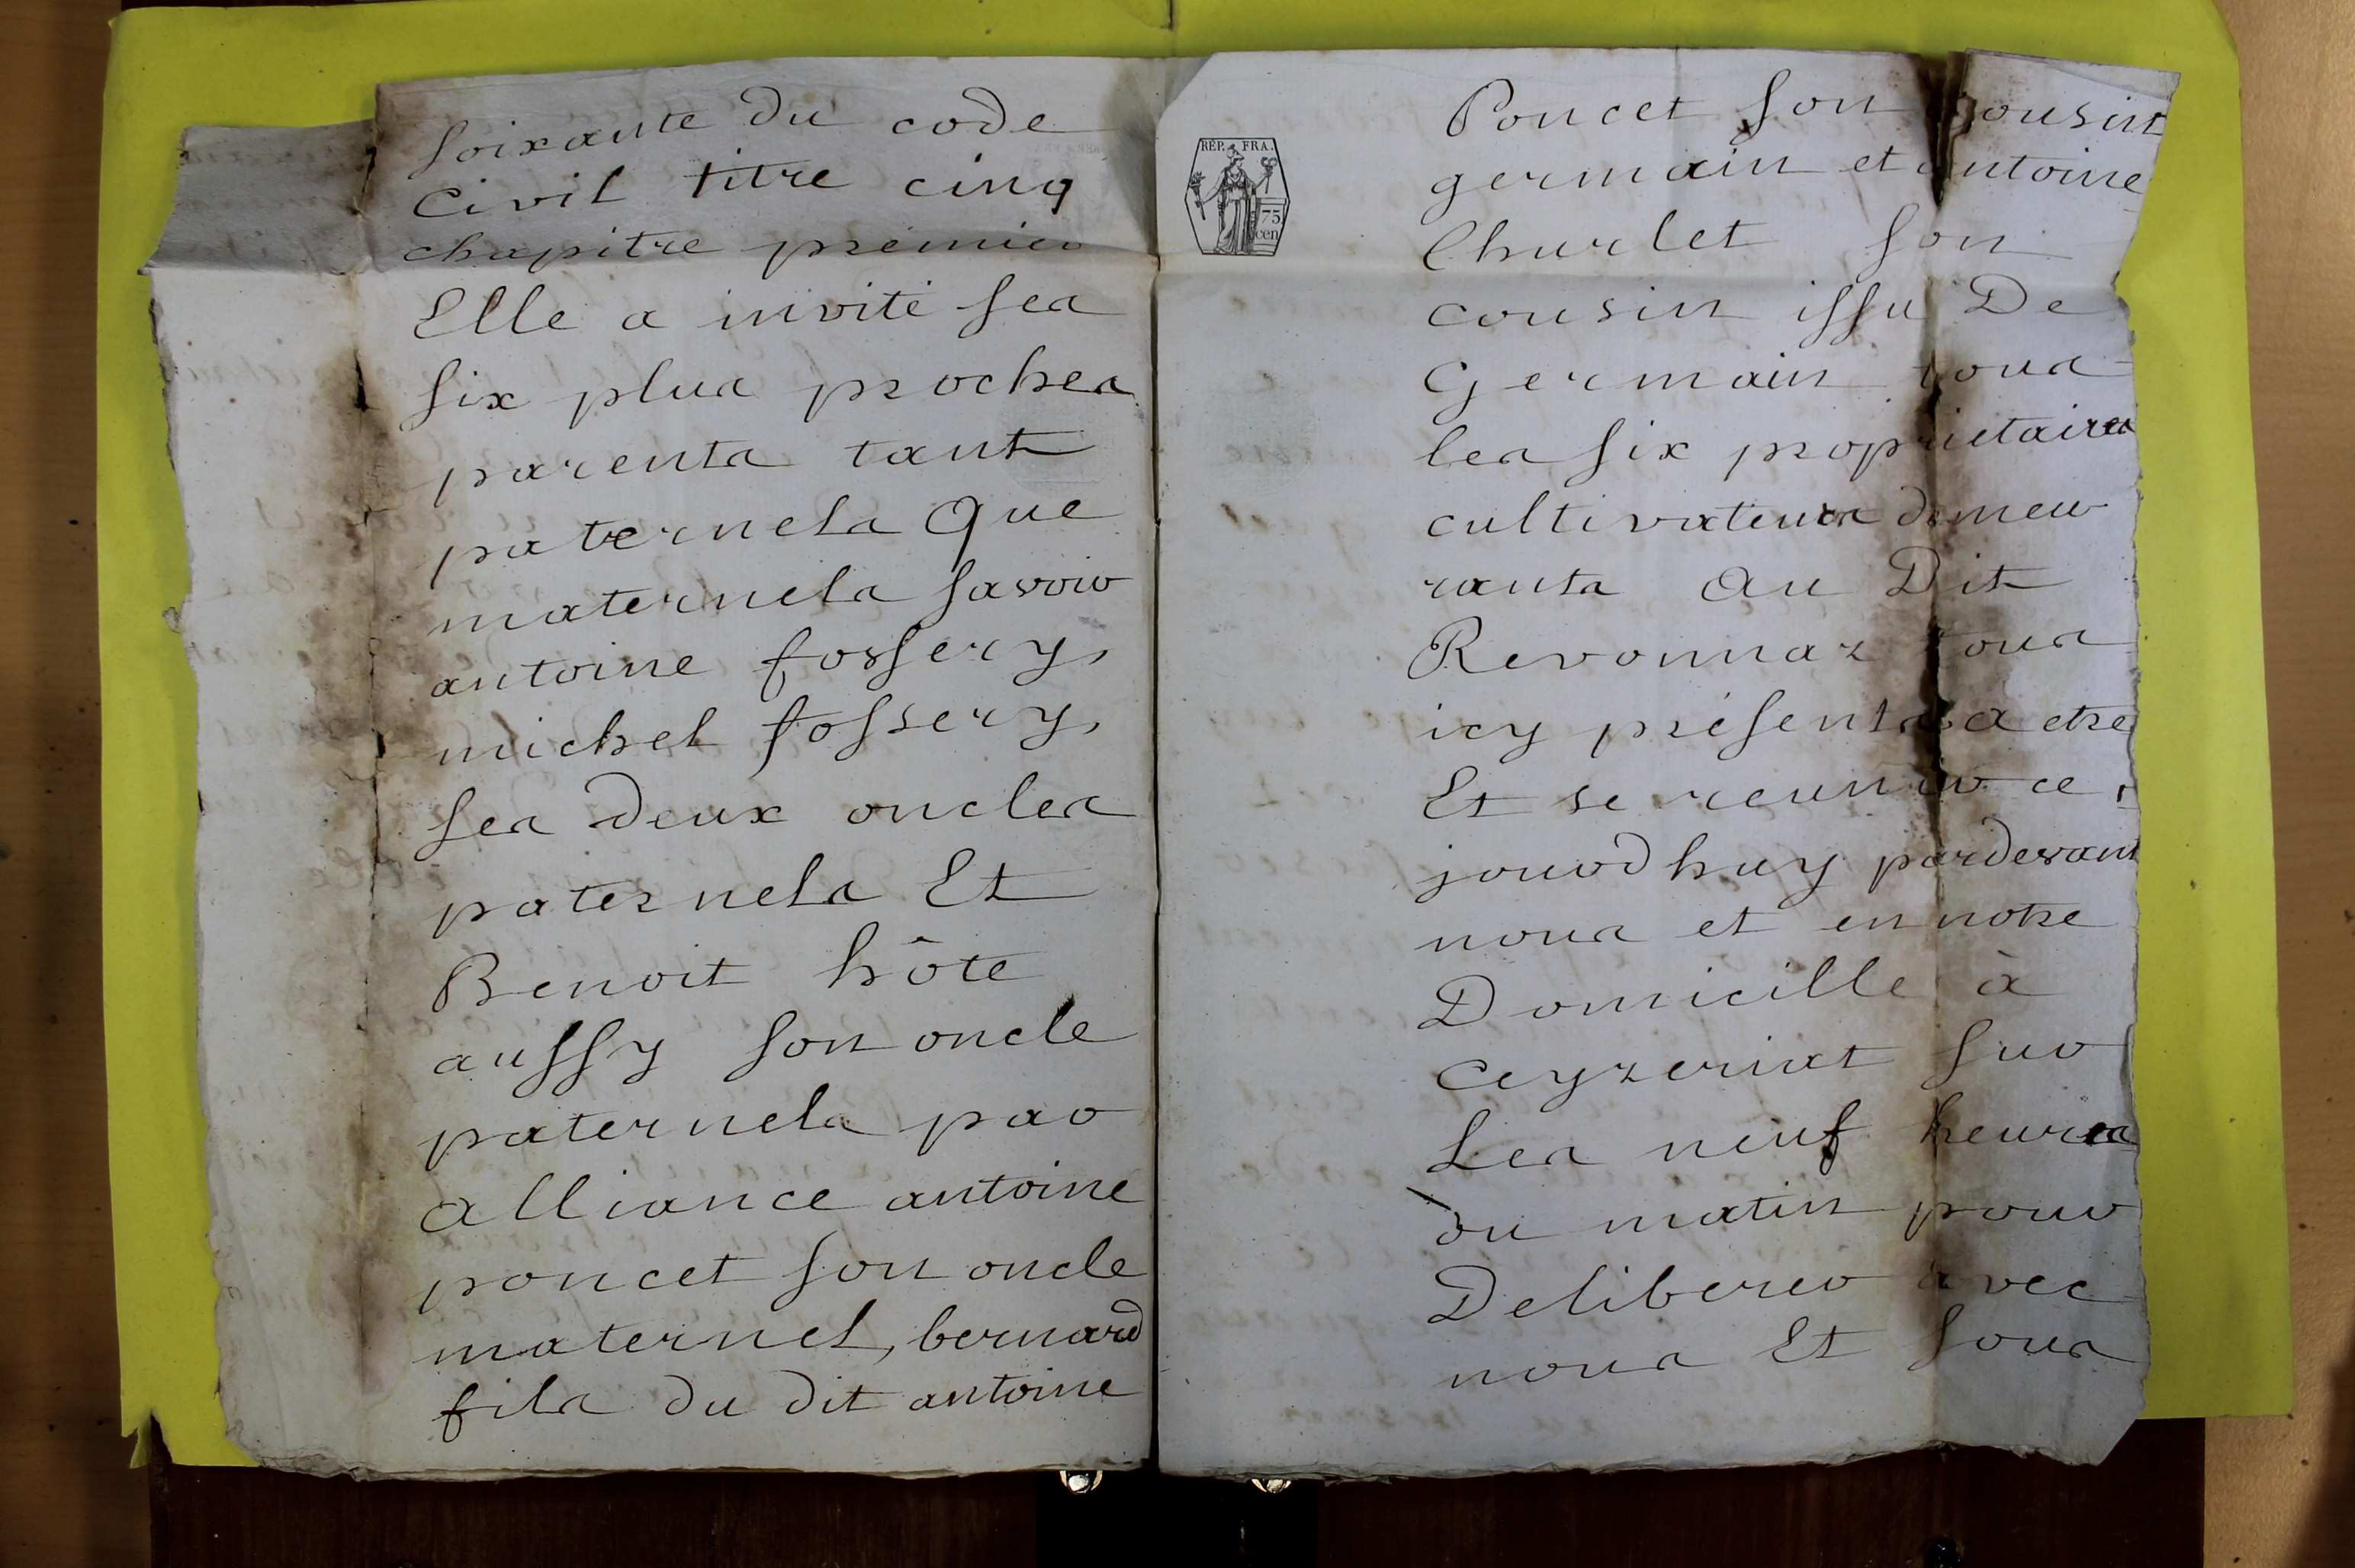 soixante du code
civil titre cinq
chapitre premier
Elle a invité ses
six plus proches
parents tant
paternels que
maternels savoir
antoine fossery,
michel fossery,
ses deux oncles
paternels Et
Benoit hôte
aussy son oncle
paternels par
alliance antoine
poncet son oncle
maternel, bernard
fils du dit antoine
RÉP. FRA.
75
cen
Poncet son cousin
germain et antoine
Churlet son
cousin issu De
Germain tous
les six propriétaires
cultivateurs demeu
rants au Dit
Revonnaz tous
icy présents a etre
Et se reunir ce
jourdhuy pardevant
nous et en notre
Domicille à
ceyzeriat sur
Les neuf heures
du matin pour
Deliberer avec
nous Et sous